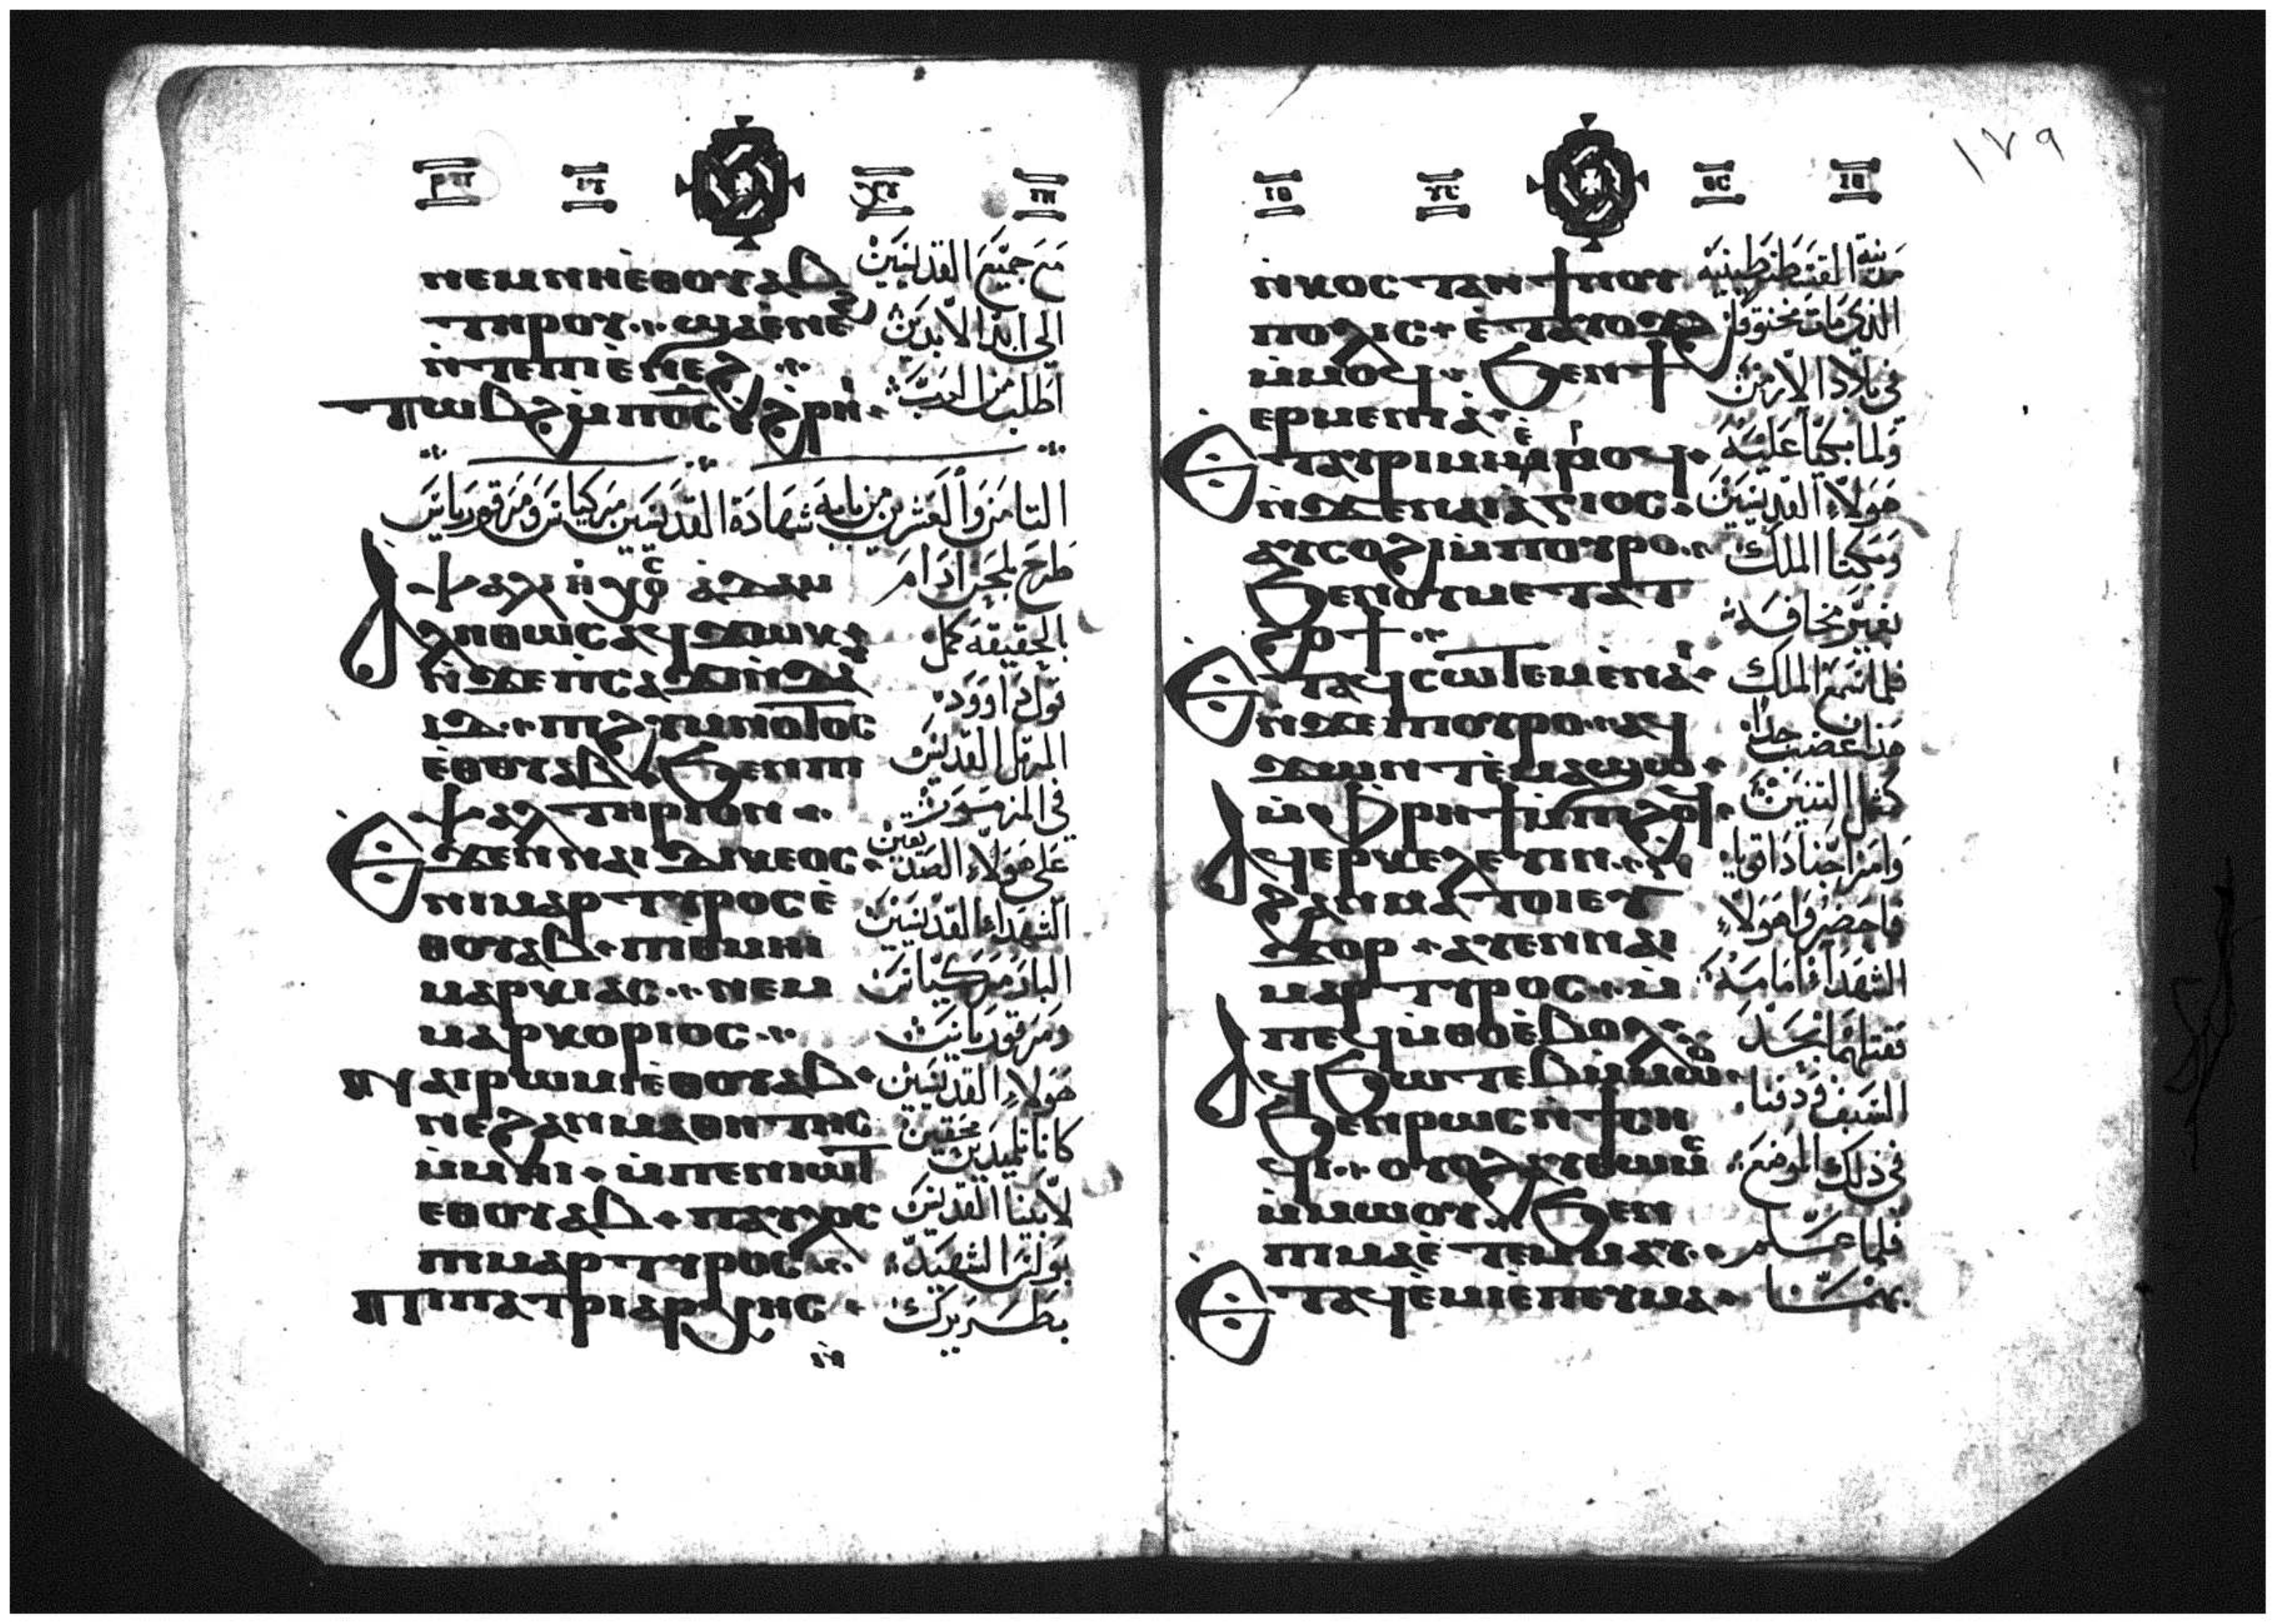 ⲛⲉⲙⲛⲏⲉⲑⲟⲩⲁⲃ
ⲧⲏⲣⲟⲩ ϣⲁⲉⲛⲉϩ
ⲛⲧⲉⲡⲓⲉⲛⲉϩ
ⲧⲱⲃϩⲙⲡⲟⲥ ⲉϩⲣⲏⲓ
مع جميع القديسين
الى ابد الابدين
اطلبا من الرب
الثامن والعشرين من بابه شهادة القديسين مركيانس ومرقوريانس
ⲯⲁⲗⲓ ⲁⲇⲁⲙ
ⲁⲗⲏⲑⲱⲥ ⲁϥϫⲱⲕ
ⲛϫⲉⲡⲥⲁϫⲓⲛⲇⲁ
ⲓⲇ ⲡⲓϩⲩⲙⲛⲟⲇⲟⲥ
ⲉⲑⲟⲩⲁⲃ ϧⲉⲛⲡⲓ
ⲯⲁⲗⲧⲏⲣⲓⲟⲛ
ϫⲉⲛⲛⲁⲓⲇⲓⲕⲉⲟⲥ
ⲛⲓⲙⲁⲣⲧⲩⲣⲟⲥ ⲉ
ⲑⲟⲩⲁⲃ ⲡⲓⲑⲙⲏⲓ
ⲙⲁⲣⲕⲓⲁⲥ ⲛⲉⲙ
ⲙⲁⲣⲕⲟⲣⲓⲟⲥ
ⲛⲁⲓⲣⲱⲙⲓⲉⲑⲟⲩⲁⲃ
ⲛⲉϩⲁⲛⲙⲁⲑⲏⲧⲏⲥ
ⲙⲙⲏⲓ ⲙⲡⲉⲛⲓⲱⲧ
ⲉⲑⲟⲩⲁⲃ ⲡⲁⲩⲗⲟⲥ
ⲡⲓⲙⲁⲣⲧⲩⲣⲟⲥ
ⲡⲓⲡⲁⲧⲣⲓⲁⲣⲭⲏⲥ
ⲛ
طرح بلحن ادام
بالحقيقة كمل
قول داوود
المرتل القديس
في المزمور
على هولاء الصديقين
الشهداء القديسين
البار مركيانس
ومرقوريانس
هولاء القديسين
كانا تلميذين محقين
لابينا القديس
بولس الشهيد
بطريرك
١٧٩
ⲛⲕⲟⲥⲧⲁⲛϯⲛⲟⲩ
ⲡⲟⲗⲓⲥ ⲉⲧⲁⲩⲟϫϩ
ⲙⲙⲟϥ ϧⲉⲛϯ
ⲉⲣⲙⲉⲛⲓⲁ
ⲉⲧⲁⲩⲣⲓⲙⲓⲉϩⲣⲏⲓⲉⲣⲟϥ
ⲛϫⲉⲛⲁⲓⲁⲅⲓⲟⲥ
ⲁⲩⲥⲟϩⲓⲙⲡⲟⲩⲣⲟ
ϧⲉⲛⲟⲩⲙⲉⲧⲁⲧ
ϩⲟϯ
ⲉⲧⲁϥⲥⲱⲧⲉⲙⲉⲛⲁⲓ
ⲛϫⲉⲡⲟⲩⲣⲟ ⲁϥ
ϫⲱⲛⲧⲉⲙⲁϣⲱ
ⲙⲫⲣⲏϯⲙⲡⲓϩⲟϥ
ⲁϥⲉⲣⲕⲉⲗⲉⲩⲓⲛ
ϩⲁⲛⲙⲁⲧⲟⲓⲉⲩ
ϫⲟⲣ ⲁⲩⲉⲛⲛⲁⲓ
ⲙⲁⲣⲧⲩⲣⲟⲥ ⲙ
ⲡⲉϥⲙⲑⲟⲉⲃⲟⲗ
ⲁϥϧⲱⲧⲉⲃⲙⲙⲱⲟⲩ
ϧⲉⲛⲣⲱⲥⲛϯⲥⲏ
ϥⲓ ⲟⲩⲟϩⲁⲩⲑⲱⲙⲥ
ⲙⲙⲱⲟⲩ ϧⲉⲛ
ⲡⲓⲙⲁⲉⲧⲉⲙⲙⲁⲩ
ⲉⲧⲁϥⲉⲙⲓⲉⲡⲉⲩⲙⲁ
مدينة القسطنطينية
الذي مات مخنوقا
في بلاد الارمن
ولما بكيا عليه
هولاء القديسين
ومكتا الملك
بغير مخافة
فلما سمع الملك
هذا غضب جدا
مثل التنين
وامر اجنادا اقويا
فاحضروا هولاء
الشهداء امامه
فقتلهما بحد
السيف ودفنا
في ذلك الموضع
فلما علم